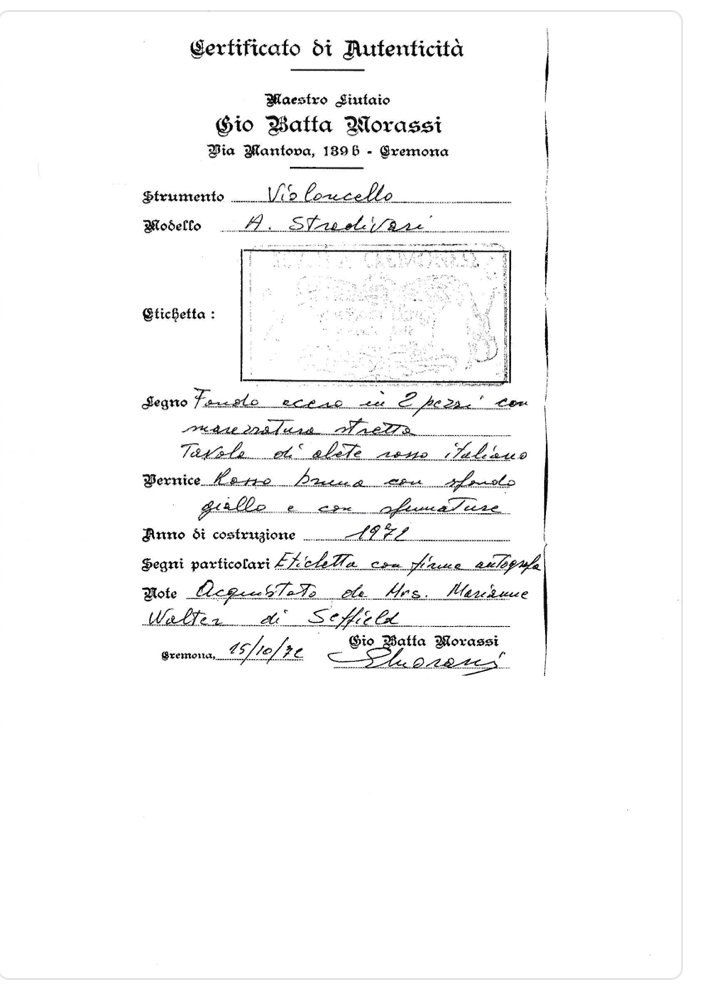 Certificato di Autenticità
Maestro Liutaio
Gio Batta Morassi
Via Mantova, 139 b - Cremona
Strumento Violoncello
Modello A. Stradivari
Etichetta :
Legno Fondo acero in 2 pezzi con
marezzatura stretta
Tavola di abete rosso italiano
Vernice Rosso bruna con sfondo
giallo e con sfumature
Anno di costruzione 1972
Segni particolari Etichetta con firma autografa
Note Acquistato da Mrs. Marianne
Walter di Seffield
Gio Batta Morassi
Cremona, 15/10/72 GBMorassi